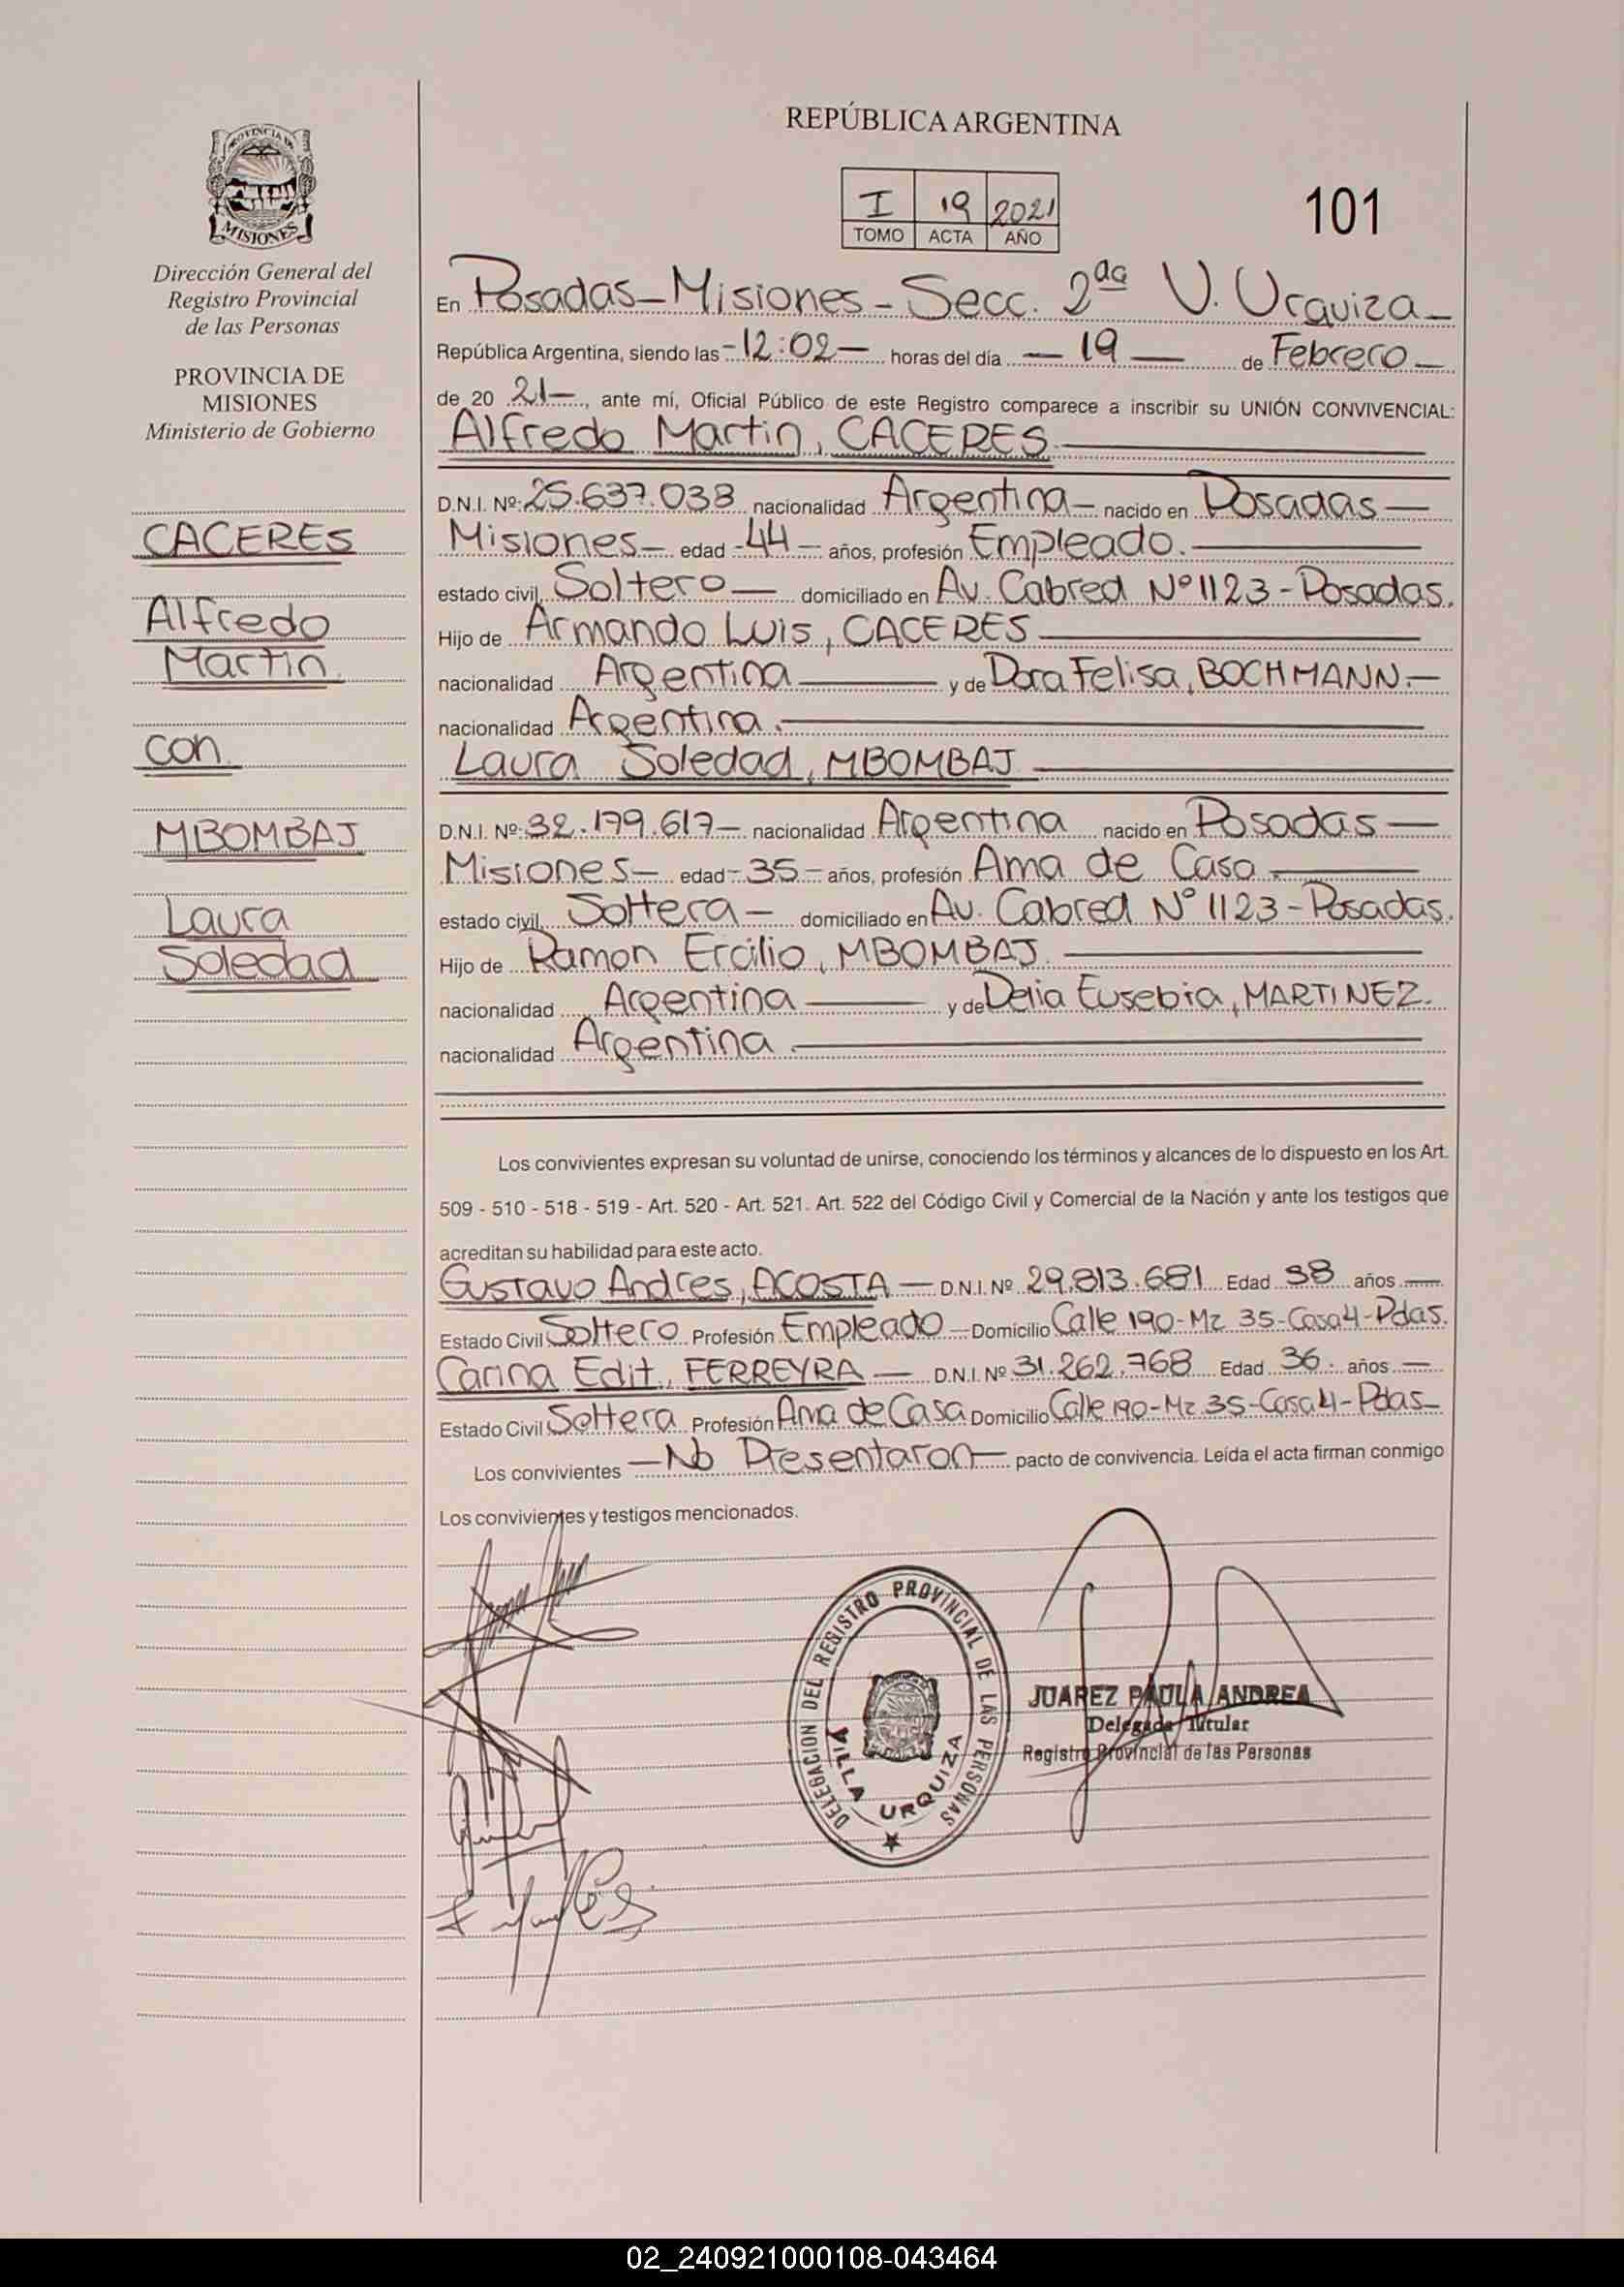 REPÚBLICA ARGENTINA
PROVINCIA DE
MISIONES
Dirección General del
Registro Provincial
de las Personas
PROVINCIA DE
MISIONES
Ministerio de Gobierno
CACERES
Alfredo
Martin
con
MBOMBAJ
Laura
Soledad
I 19 2021
TOMO ACTA AÑO
101
En Posadas - Misiones - Secc. 2da V. Urquiza -
República Argentina, siendo las - 12:02 - horas del día - 19 - de Febrero -
de 20 21 -, ante mí, Oficial Público de este Registro comparece a inscribir su UNIÓN CONVIVENCIAL:
Alfredo Martin, CACERES
D.N.I. Nº: 25.637.038 nacionalidad Argentina - nacido en Posadas -
Misiones - edad - 44 - años, profesión Empleado.
estado civil Soltero - domiciliado en Av. Cabred Nº 1123 - Posadas.
Hijo de Armando Luis, CACERES
nacionalidad Argentina y de Dora Felisa, BOCHMANN.-
nacionalidad Argentina.
Laura Soledad, MBOMBAJ
D.N.I. Nº: 32.179.617 - nacionalidad Argentina nacido en Posadas -
Misiones - edad - 35 - años, profesión Ama de Casa
estado civil Soltera - domiciliado en Av. Cabred Nº 1123 - Posadas.
Hijo de Ramon Ercilio, MBOMBAJ.
nacionalidad Argentina y de Delia Eusebia, MARTINEZ.
nacionalidad Argentina.
Los convivientes expresan su voluntad de unirse, conociendo los términos y alcances de lo dispuesto en los Art.
509 - 510 - 518 - 519 - Art. 520 - Art. 521. Art. 522 del Código Civil y Comercial de la Nación y ante los testigos que
acreditan su habilidad para este acto.
Gustavo Andres, ACOSTA - D.N.I. Nº 29.813.681 Edad 38 años -
Estado Civil Soltero Profesión Empleado - Domicilio Calle 190 - Mz 35 - Casa 4 - Pdas.
Carina Edit, FERREYRA - D.N.I. Nº 31.262.768 Edad 36 años -
Estado Civil Soltera Profesión Ama de Casa Domicilio Calle 190 - Mz 35 - Casa 4 - Pdas -
Los convivientes - No Presentaron - pacto de convivencia. Leída el acta firman conmigo
Los convivientes y testigos mencionados.
DELEGACION DEL REGISTRO PROVINCIAL DE LAS PERSONAS
VILLA URQUIZA
JUAREZ PAULA ANDREA
Delegada Titular
Registro Provincial de las Personas
02_240921000108-043464